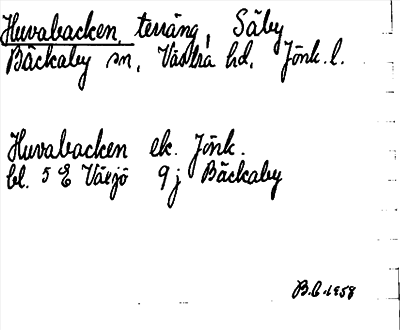 Huvabacken, terräng, Säby
Bäckaby sn, Västra hd, Jönk. l.
Huvabacken ek. Jönk.
bl. 5 E Växjö 9j Bäckaby
B.C. 1958